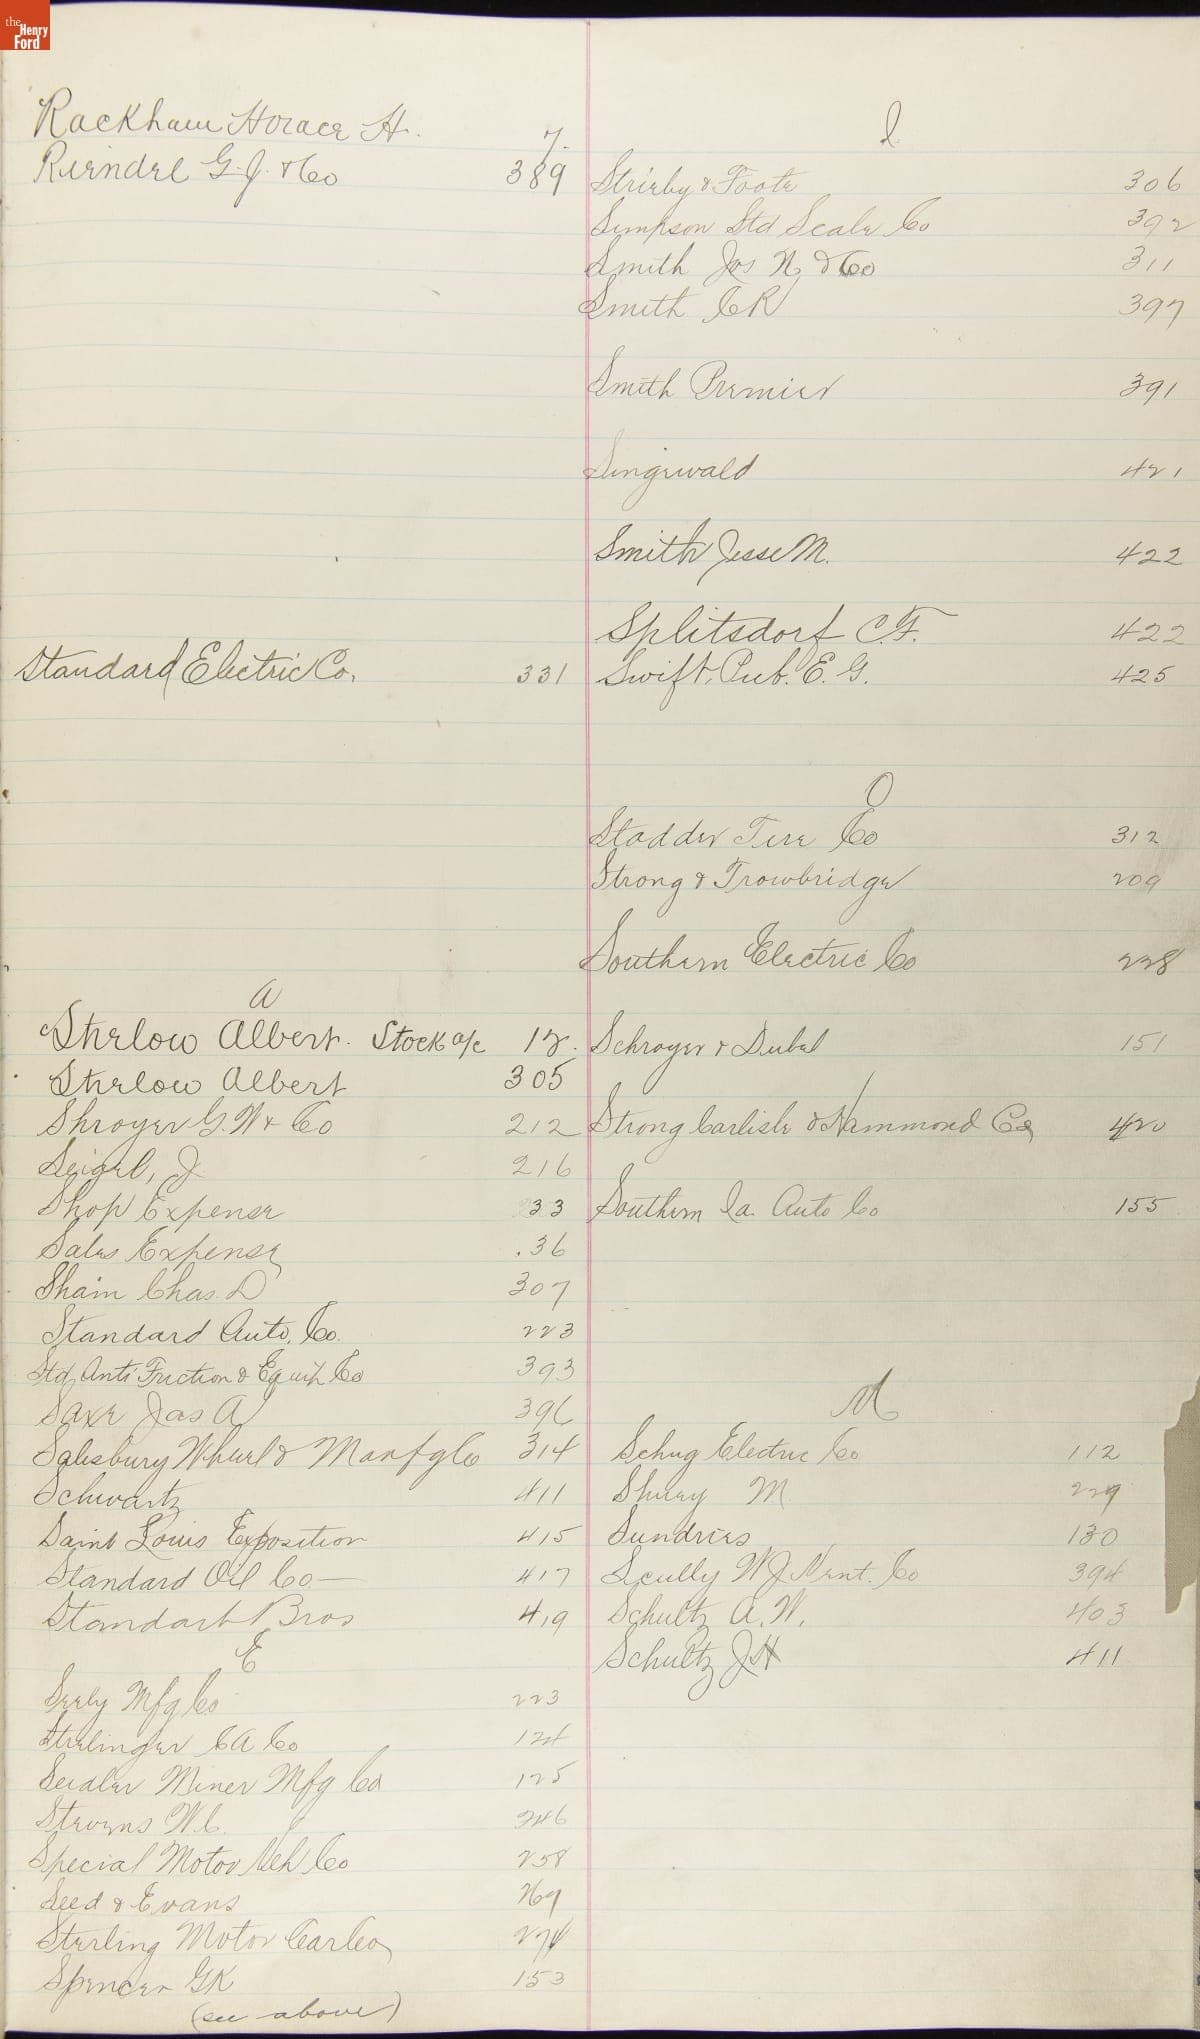 the Henry Ford
Rackham Horace H. 7.
Rieindel G. J. & Co 389
Standard Electric Co. 331
A
Strelow Albert. Stock a/c 12.
Strelow Albert 305
Shroyer G. W & Co 212
Seigel, J. 216
Shop Expense 33
Sales Expense .36
Shain Chas. D 307
Standard Auto. Co. 223
Std Anti Friction & Equip Co 393
Saxe Jas A 396
Salesbury Wheel & Manfg Co 314
Schwartz 411
Saint Louis Exposition 415
Standard Oil Co 417
Standart Bros 419
E
Seely Mfg Co 223
Strelinger C A Co 124
Seidler Miner Mfg Co 125
Stevens W. C. 246
Special Motor Veh Co 258
Seed & Evans 269
Sterling Motor Car Co 274
Spencer G K 153
(see above)
I
Strieby & Foote 306
Simpson Std Scale Co 392
Smith Jos N. & Co 311
Smith C R 397
Smith Premier 391
Singewald 421
Smith Jesse M. 422
Splitsdorf C. F. 422
Swift, Pub. E. G. 425
O
Stodder Tire Co 312
Strong & Trowbridge 209
Southern Electric Co 228
Schroyer & Dubel 151
Strong Carlisle & Hammond Co 420
Southern Ca. Auto Co 155
M
Schug Electric Co 112
Shuey M 229
Sundries 130
Scully W J Co 394
Schultz A. W. 403
Schultz J H 411